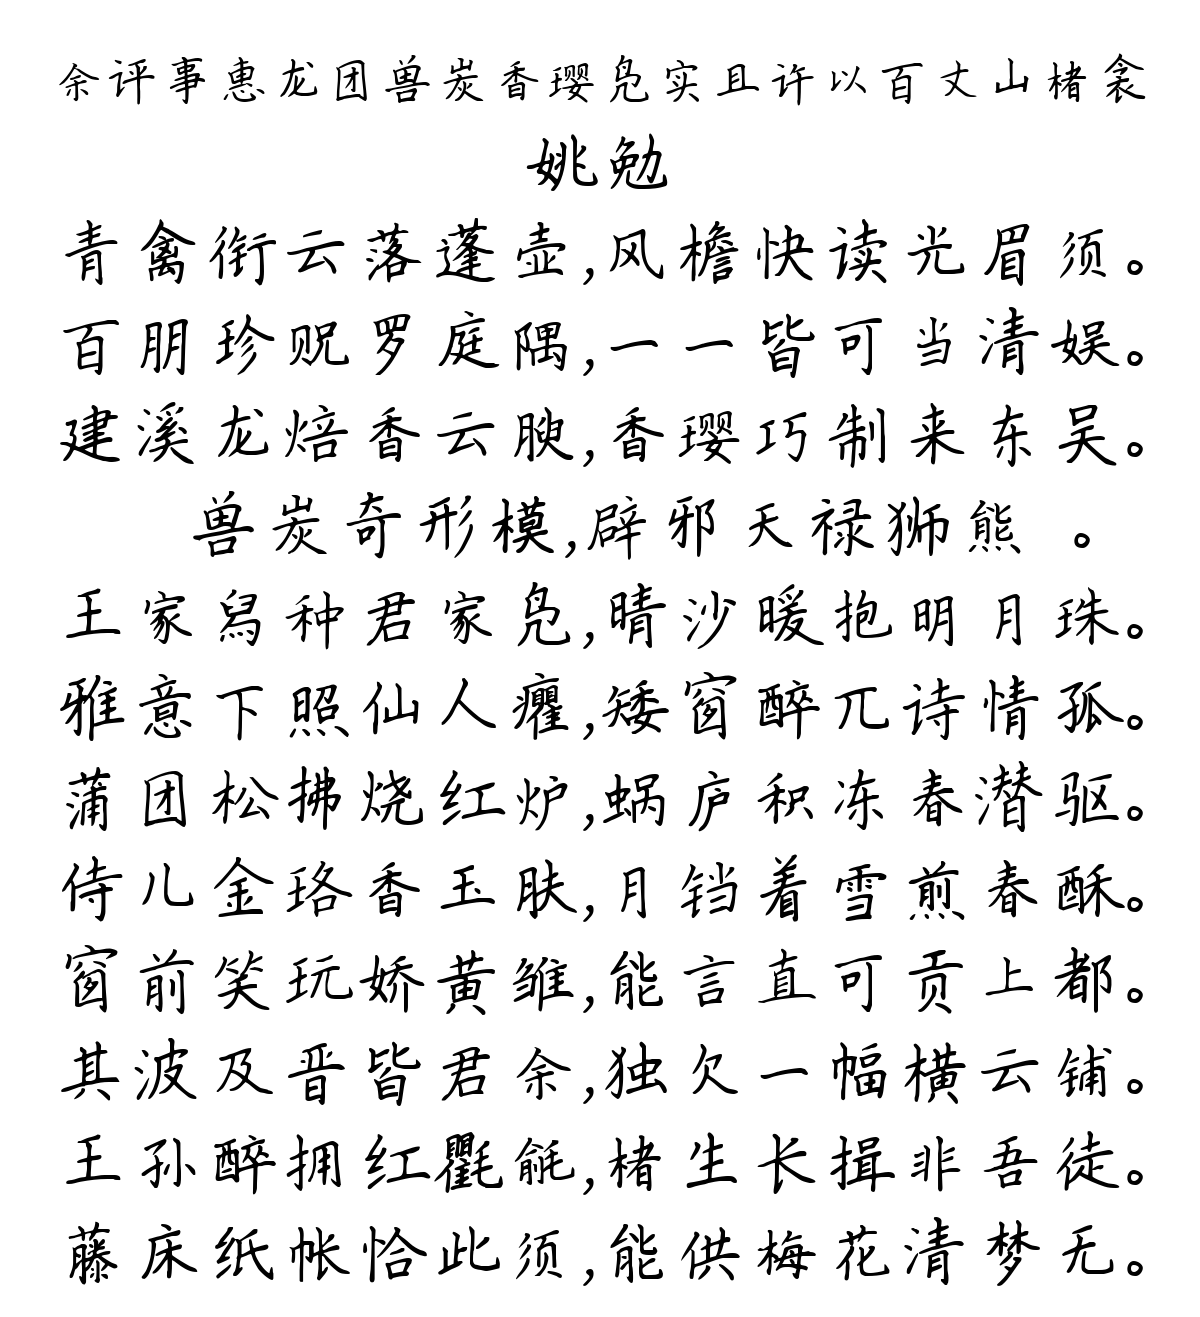 余评事惠龙团兽炭香璎凫实且许以百丈山楮衾
姚勉
青禽衔云落蓬壶,风檐快读光眉须。
百朋珍贶罗庭隅,一一皆可当清娱。
建溪龙焙香云腴,香璎巧制来东吴。
兽炭奇形模,辟邪天禄狮熊 。
王家舄种君家凫,晴沙暖抱明月珠。
雅意下照仙人癯,矮窗醉兀诗情孤。
蒲团松拂烧红炉,蜗庐积冻春潜驱。
侍儿金珞香玉肤,月铛着雪煎春酥。
窗前笑玩娇黄雏,能言直可贡上都。
其波及晋皆君余,独欠一幅横云铺。
王孙醉拥红氍毹,楮生长揖非吾徒。
藤床纸帐恰此须,能供梅花清梦无。